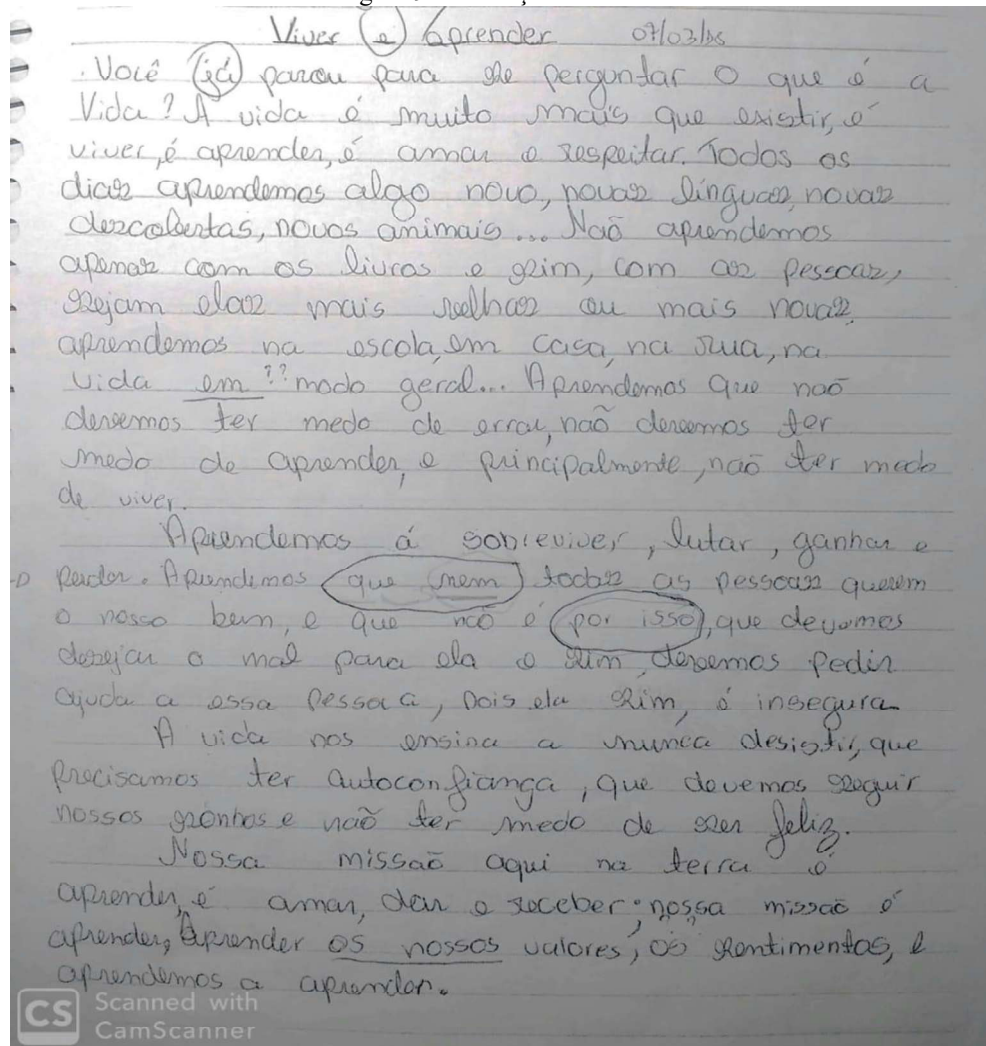 Viver e Aprender 07/03/
Você já parou para se perguntar o que é a
Vida? A vida é muito mais que existir, é
viver, é aprender, é amar e respeitar. Todos os
dias aprendemos algo novo, novas línguas, novas
descobertas, novos animais... Naõ aprendemos
apenas com os livros e sim, com as pessoas,
sejam elas mais velhas ou mais novas.
aprendemos na escola, em casa, na rua, na
vida em ?? modo geral... Aprendemos que naõ
devemos ter medo de errar, não devemos ter
medo de aprender, e principalmente, naõ ter medo
de viver.
Aprendemos á sobreviver, lutar, ganhar e
perder. Aprendemos que nem todas as pessoas querem
o nosso bem, e que não é por isso, que devemos
desejar o mal para ela e sim, devemos pedir
ajuda a essa pessoa, pois ela sim, é insegura
A vida nos ensina a nunca desistir, que
precisamos ter autoconfiança, que devemos seguir
nossos sonhos e naõ ter medo de ser feliz.
Nossa missaõ aqui na terra é
aprender, é amar, dar e receber; nossa missaõ é
aprender, Aprender os nossos valores, os sentimentos, e
aprendemos a aprender.
CS Scanned with
CamScanner